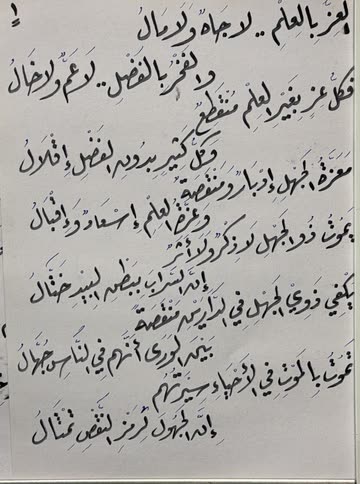 ١
العِزُّ بِالعِلْمِ .. لا جاهٌ وَلا مَالُ
والفَخْرُ بالفَضْلِ .. لا عَمٌّ ولا خَالُ
فكُلُّ عِزٍ بِغَيْرِ العِلْمِ مُنْقَطِعٌ
وكلُّ كَثِيرٍ بِدُونِ الفَضْلِ إقْلَالُ
مَعَزَّةُ الجَهْلِ إدْبَارٌ وَمَنْقَصَةٌ
وعِزَّةُ العِلْمِ إسْعَادٌ وَإقْبَالُ
يَمُوتُ ذُو الجَهْلِ لا ذِكْرٌ ولا أَثَرٌ
إنَّ السَّرَابَ بِبَطْنِ البِيْدِ خَتَّالُ
يَكْفِي ذَوِيْ الجَهْلِ في الدَّارَيْنِ مَنْقَصَةً
بَيْنَ الوَرَى أنَّهم في النَّاسِ جُهَّالُ
تَمُوتُ بِالمَوْتِ في الأَحْيَاءِ سِيرَتُهُم
إنَّ الجَهُولَ لِرَمْزِ النَّقْصِ تِمْثَالُ